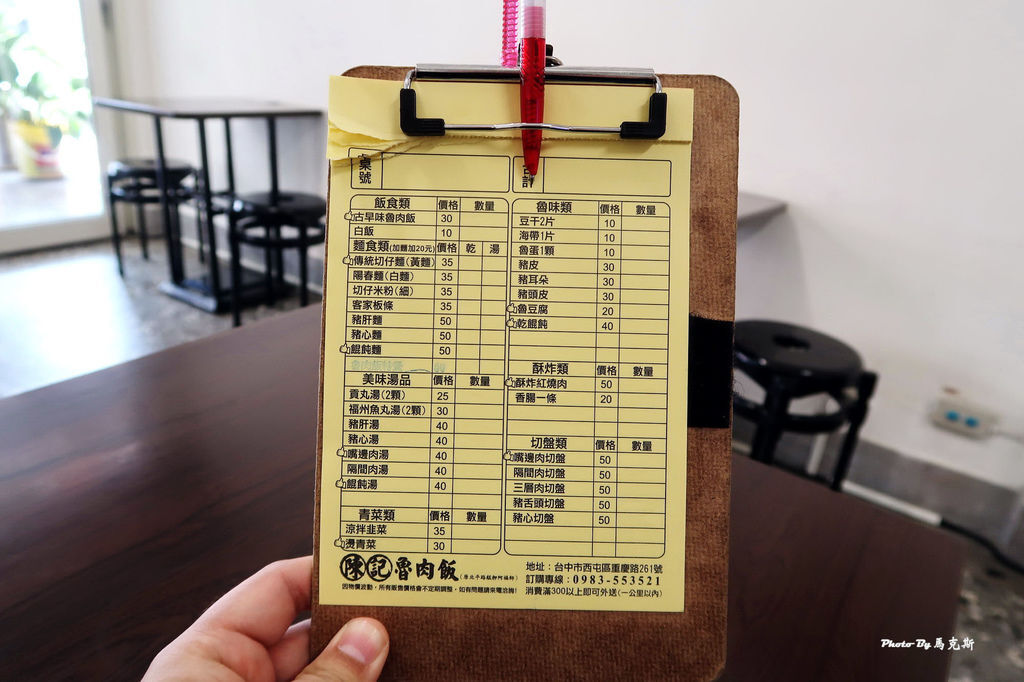 桌號
合計
飯食類 價格 數量
古早味魯肉飯 30
白飯 10
麵食類(加麵加20元) 價格 乾 湯
傳統切仔麵(黃麵) 35
陽春麵(白麵) 35
切仔米粉(細) 35
客家板條 35
豬肝麵 50
豬心麵 50
餛飩麵 50
美味湯品 價格 數量
貢丸湯(2顆) 25
福州魚丸湯(2顆) 30
豬肝湯 40
豬心湯 40
嘴邊肉湯 40
隔間肉湯 40
餛飩湯 40
青菜類 價格 數量
涼拌韭菜 35
燙青菜 30
魯味類 價格 數量
豆干2片 10
海帶1片 10
魯蛋1顆 10
豬皮 30
豬耳朵 30
豬頭皮 30
魯豆腐 20
乾餛飩 40
酥炸類 價格 數量
酥炸紅燒肉 50
香腸一條 20
切盤類 價格 數量
嘴邊肉切盤 50
隔間肉切盤 50
三層肉切盤 50
豬舌頭切盤 50
豬心切盤 50
陳記魯肉飯
因物價波動，所有販售價格會不定期調整，如有問題請來電洽詢!
地址：台中市西屯區重慶路261號
訂購專線：0983-553521
消費滿300以上即可外送(一公里以內)
Photo By 馬克斯